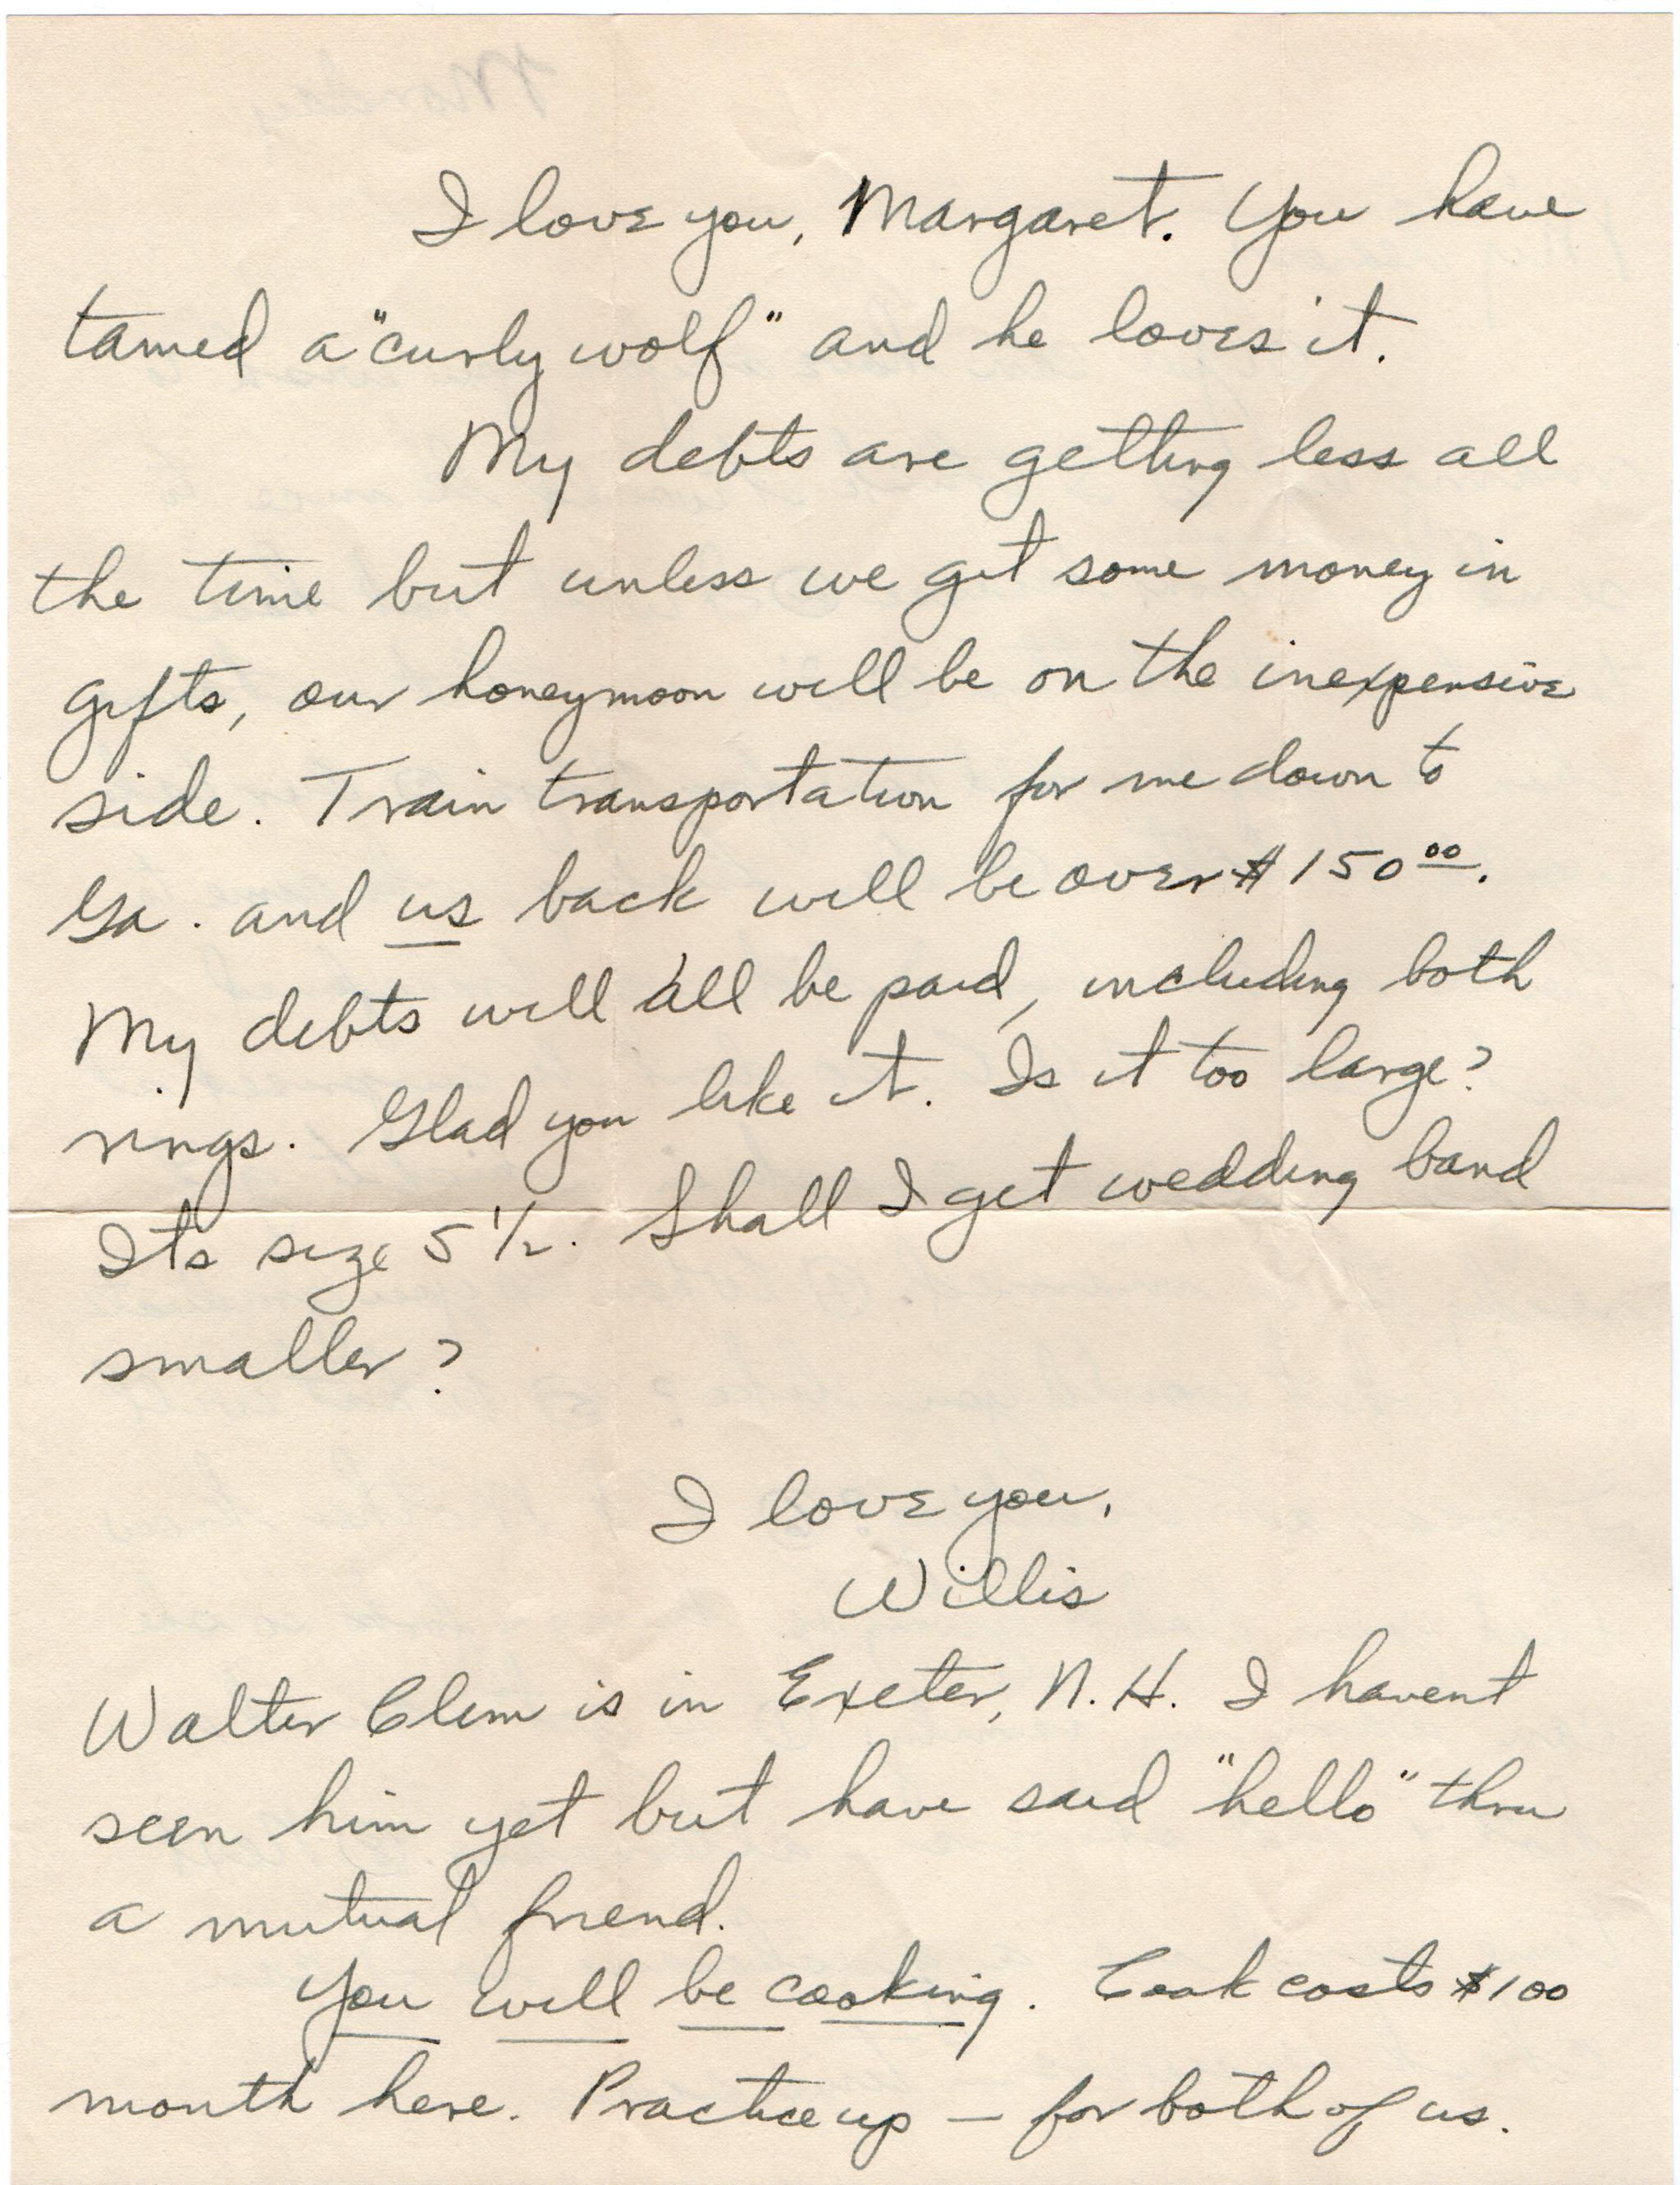 I love you, Margaret. You have
tamed a "curly wolf" and he loves it.
My debts are getting less all
the time but unless we get some money in
gifts, our honeymoon will be on the inexpensive
side. Train transportation for me down to
Ga. and us back will be over $150.00.
My debts will all be paid, including both
rings. Glad you like it. Is it too large?
Its size 5 1/2. Shall I get wedding band
smaller?
I love you,
Willis
Walter Clem is in Exeter, N.H. I havent
seen him yet but have said "hello" thru
a mutual friend.
You will be cooking. Cook costs $100
month here. Practice up — for both of us.